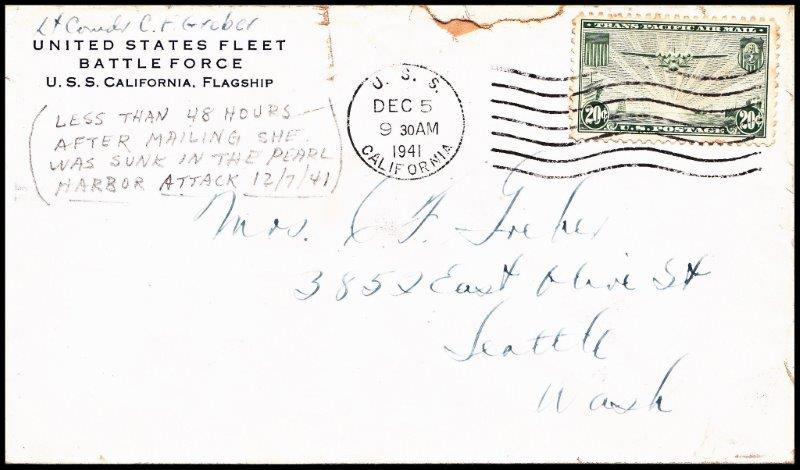 Lt Comdr C. F. Greber
UNITED STATES FLEET
BATTLE FORCE
U. S. S. CALIFORNIA, FLAGSHIP
(LESS THAN 48 HOURS —
AFTER MAILING SHE
WAS SUNK IN THE PEARL
HARBOR ATTACK 12/7/41)
U. S. S.
DEC 5
9 30AM
1941
CALIFORNIA
TRANS-PACIFIC AIR MAIL
20¢ 20¢
U.S. POSTAGE
Mrs. C F. Greber
3852 East Olive St
Seattle
Wash